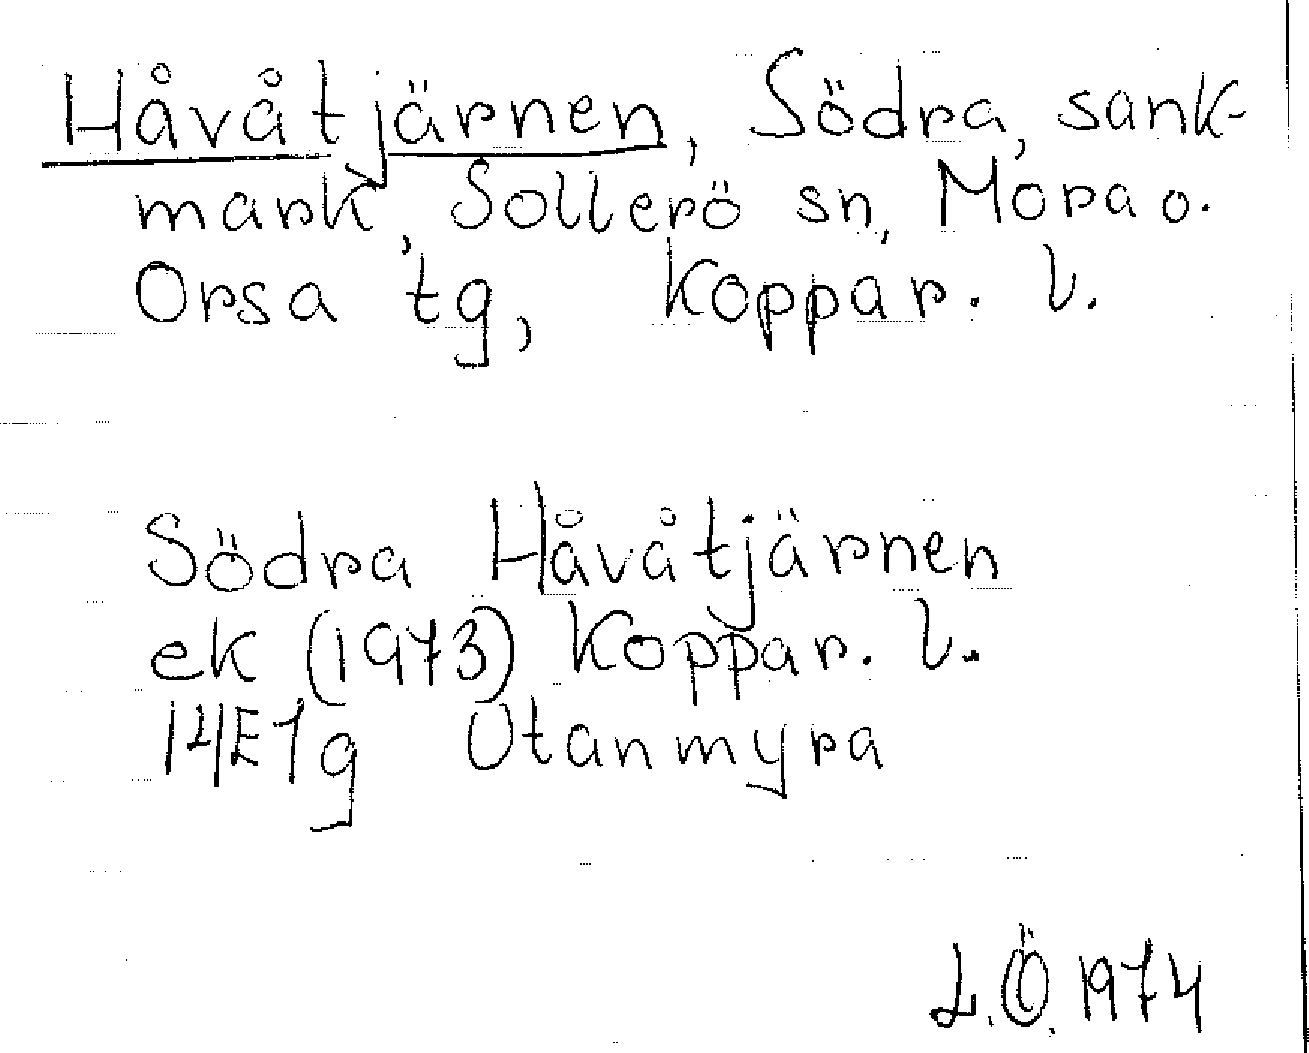 Håvåtjärnen, Södra, sank-
mark, Sollerö sn, Mora o.
Orsa tg, Koppar. l.
Södra Håvåtjärnen
ek (1973) Koppar. l.
14E1g Utanmyra
L.Ö. 1974